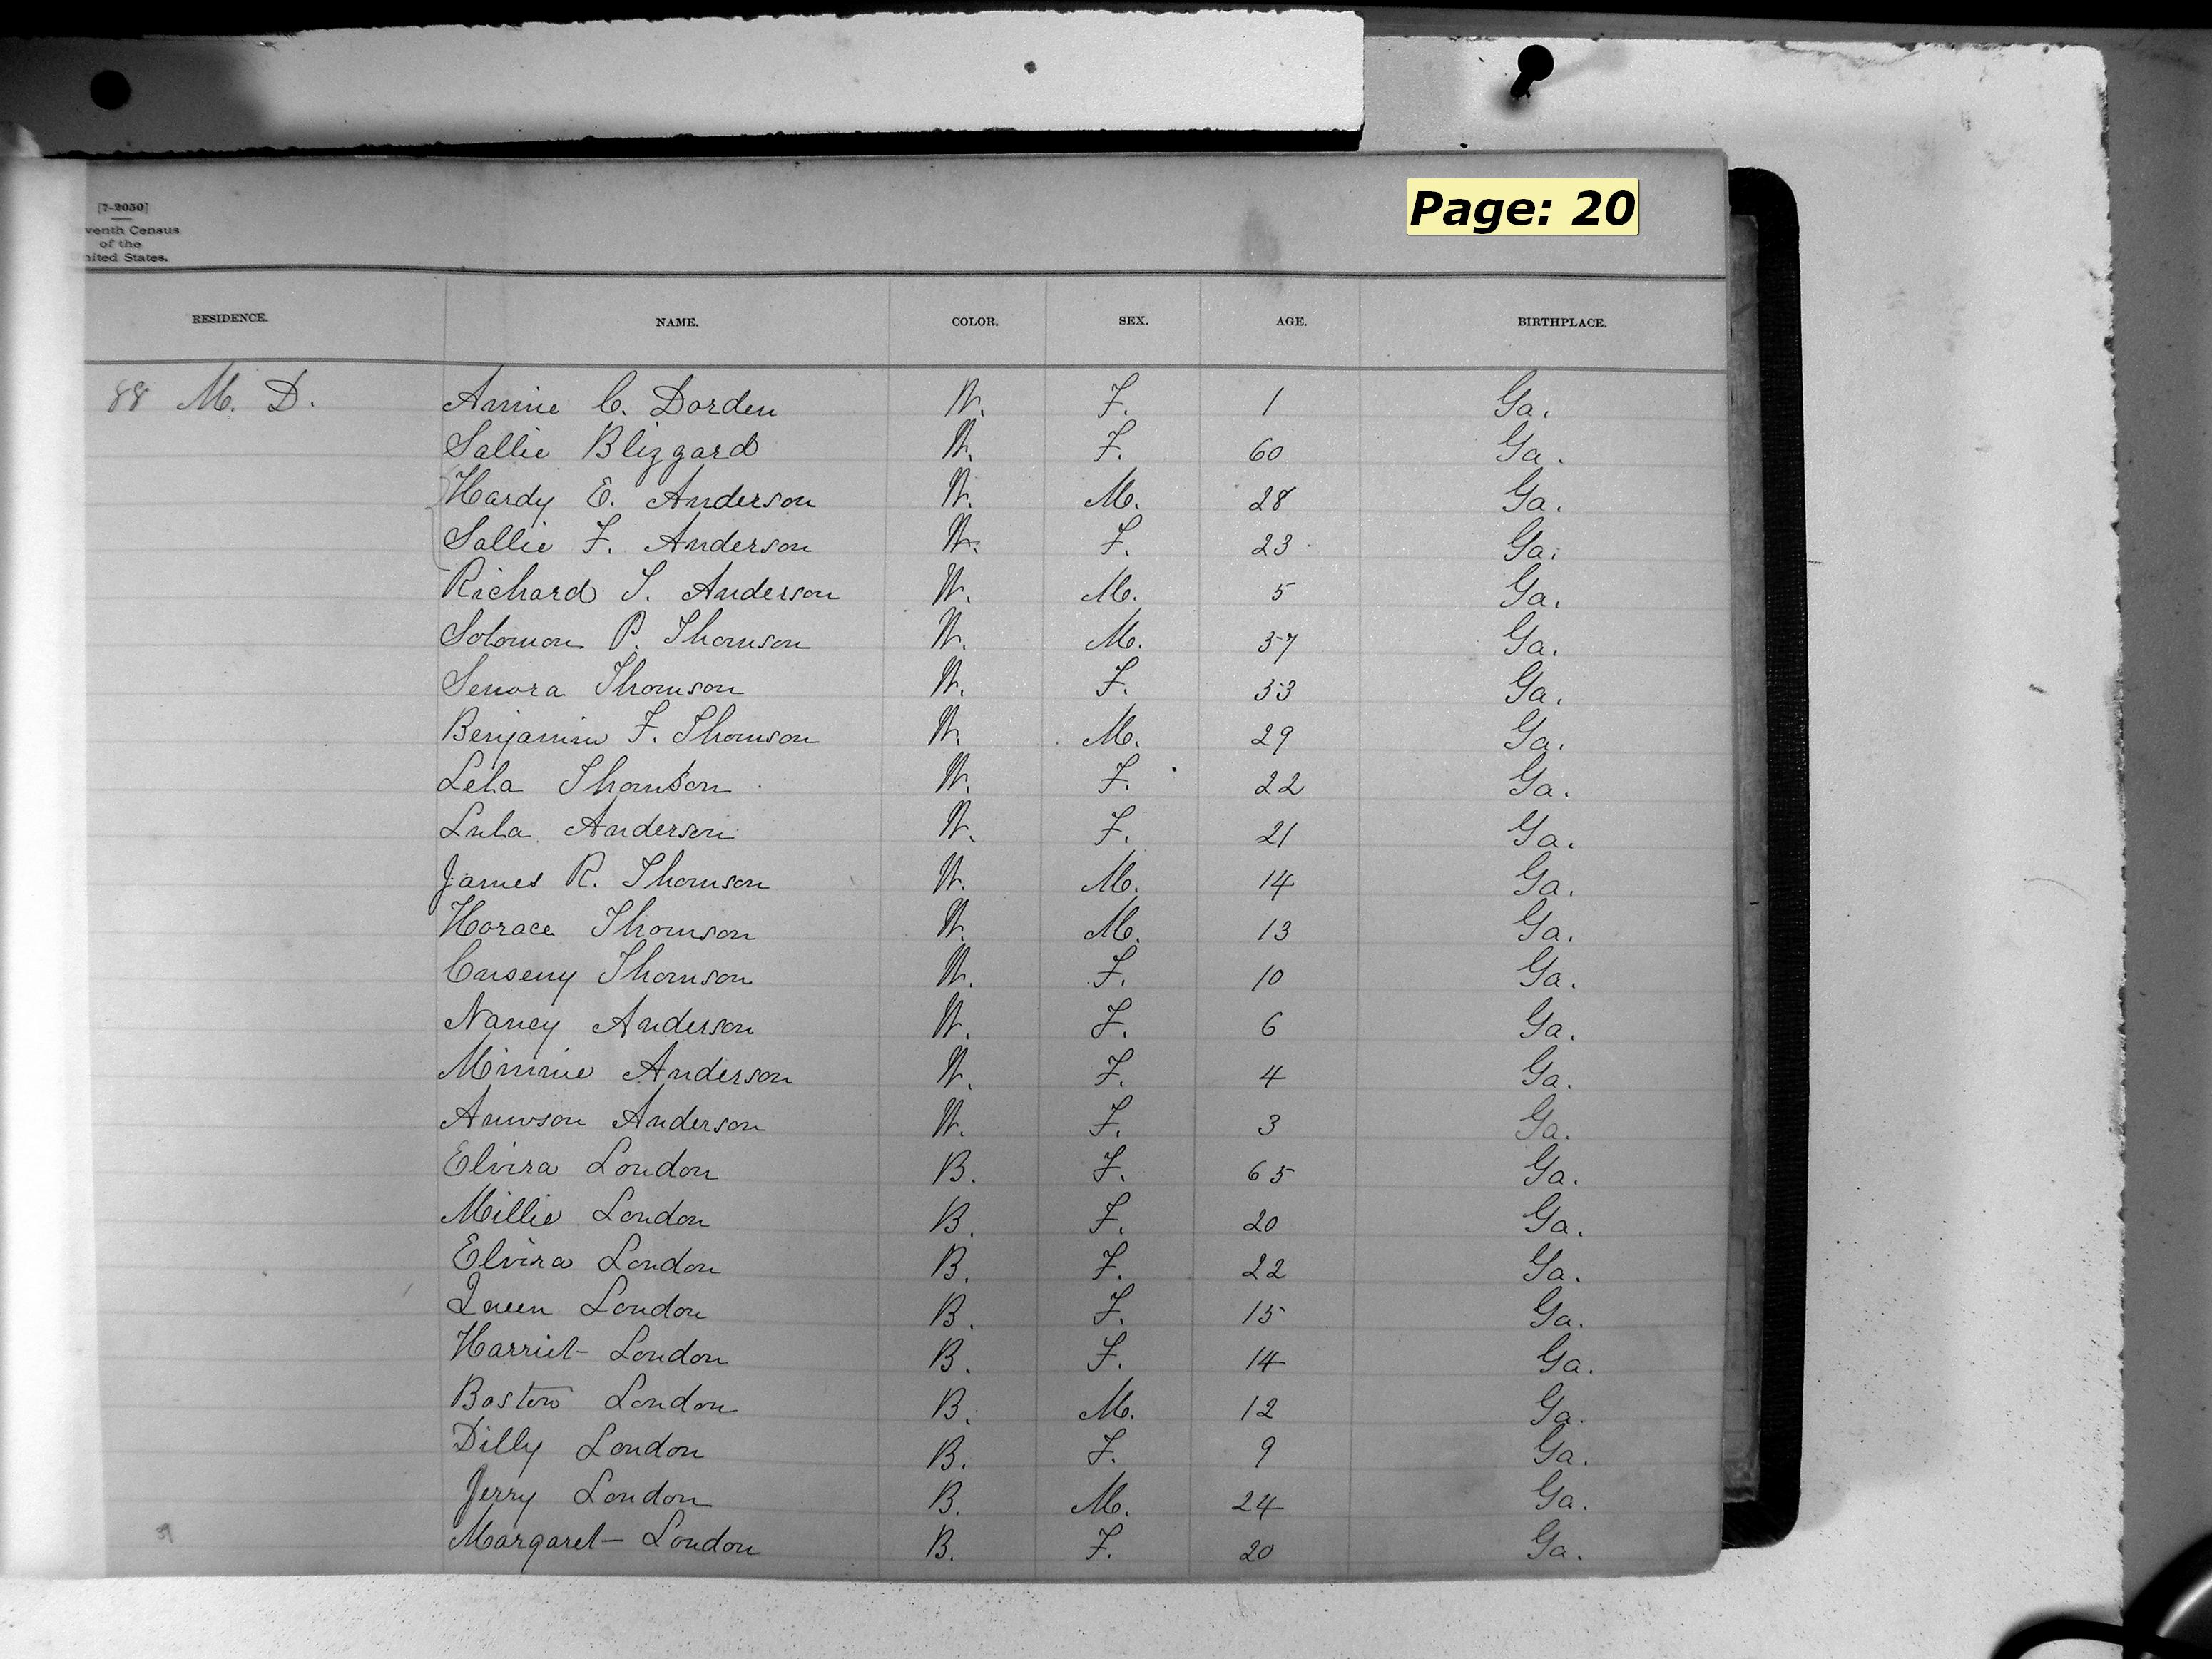 [7-2050]
venth Census
of the
nited States.
Page: 20
RESIDENCE. NAME. COLOR. SEX. AGE. BIRTHPLACE.
88 M. D. Annie C. Dorden W. F. 1 Ga.
Sallie Blizzard W. F. 60 Ga.
Hardy E. Anderson W. M. 28 Ga.
Sallie F. Anderson W. F. 23 Ga.
Richard S. Anderson W. M. 5 Ga.
Solomon P. Thomson W. M. 37 Ga.
Senora Thomson W. F. 33 Ga.
Benjamin F. Thomson W. M. 29 Ga.
Lela Thomson W. F. 22 Ga.
Lula Anderson W. F. 21 Ga.
James R. Thomson W. M. 14 Ga.
Horace Thomson W. M. 13 Ga.
Thomson W. F. 10 Ga.
Nancy Anderson W. F. 6 Ga.
Minnie Anderson W. F. 4 Ga.
Anderson W. F. 3 Ga.
Elvira London B. F. 65 Ga.
Millie London B. F. 20 Ga.
Elvira London B. F. 22 Ga.
Queen London B. F. 15 Ga.
Harriet London B. F. 14 Ga.
Boston London B. M. 12 Ga.
Dilly London B. F. 9 Ga.
Jerry London B. M. 24 Ga.
Margaret London B. F. 20 Ga.